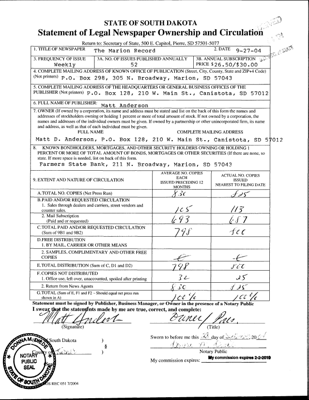 STATE OF SOUTH DAKOTA
Statement of Legal Newspaper Ownership and Circulation
Return to: Secretary of State, 500 E. Capitol, Pierre, SD 57501-5077
1. TITLE OF NEWSPAPER The Marion Record 2. DATE 9-27-04
3. FREQUENCY OF ISSUE 3A. NO. OF ISSUES PUBLISHED ANNUALLY 3B. ANNUAL SUBSCRIPTION
Weekly 52 PRICE $26.50/$30.00
4. COMPLETE MAILING ADDRESS OF KNOWN OFFICE OF PUBLICATION (Street, City, County, State and ZIP+4 Code)
(Not printers) P.O. Box 298, 305 N. Broadway, Marion, SD 57043
5. COMPLETE MAILING ADDRESS OF THE HEADQUARTERS OR GENERAL BUSINESS OFFICES OF THE
PUBLISHER (Not printers) P.O. Box 128, 210 W. Main St., Canistota, SD 57012
6. FULL NAME OF PUBLISHER Matt Anderson
7. OWNER (If owned by a corporation, its name and address must be stated and
addresses of stockholders owning or holding 1 percent or more of total amount of stock. If not owned by a corporation, the
names and addresses of the individual owners must be given. If owned by a partnership or other unincorporated firm, its name
and address, as well as that of each individual must be given.
FULL NAME COMPLETE MAILING ADDRESS
Matt D. Anderson, P.O. Box 128, 210 W. Main St., Canistota, SD 57012
8. KNOWN BONDHOLDERS, MORTGAGES, AND OTHER SECURITY HOLDERS OWNING OR HOLDING 1
PERCENT OR MORE OF TOTAL AMOUNT OF BONDS, MORTGAGES OR OTHER SECURITIES (If there are none, so
state. If more space is needed, list on back of this form.
Farmers State Bank, 211 N. Broadway, Marion, SD 57043
9. EXTENT AND NATURE OF CIRCULATION
AVERAGE NO. COPIES
EACH
ISSUED PRECEDING 12
MONTHS
ACTUAL NO. COPIES
ISSUED
NEAREST TO FILING DATE
A. TOTAL NO. COPIES (Net Press Run)
B. PAID AND/OR REQUESTED CIRCULATION
1. Sales through dealers and carriers, street vendors and
counter sales 105 113
2. Mail Subscription
(Paid and/or requested) 693 687
C. TOTAL PAID AND/OR REQUESTED CIRCULATION
(Sum of 9B1 and 9B2) 798 800
D. FREE DISTRIBUTION
1. BY MAIL, CARRIER OR OTHER MEANS
2. SAMPLES, COMPLIMENTARY AND OTHER FREE
COPIES
E. TOTAL DISTRIBUTION (Sum of C, D1 and D2) 798 800
F. COPIES NOT DISTRIBUTED
1. Office use, left over, unaccounted, spoiled after printing 22 25
2. Return from News Agents
G. TOTAL (Sum of E, F1 and F2 - Should equal net press run
shown in A)
Statement must be signed by Publisher, Business Manager, or Owner in the presence of a Notary Public
I swear that the statements made by me are true, correct, and complete:
Matt Anderson
(Signature) (Title)
South Dakota
Sworn to before me this
Notary Public
My commission expires: My commission expires
DONNA M.
NOTARY
PUBLIC
SEAL
STATE OF SOUTH DAKOTA